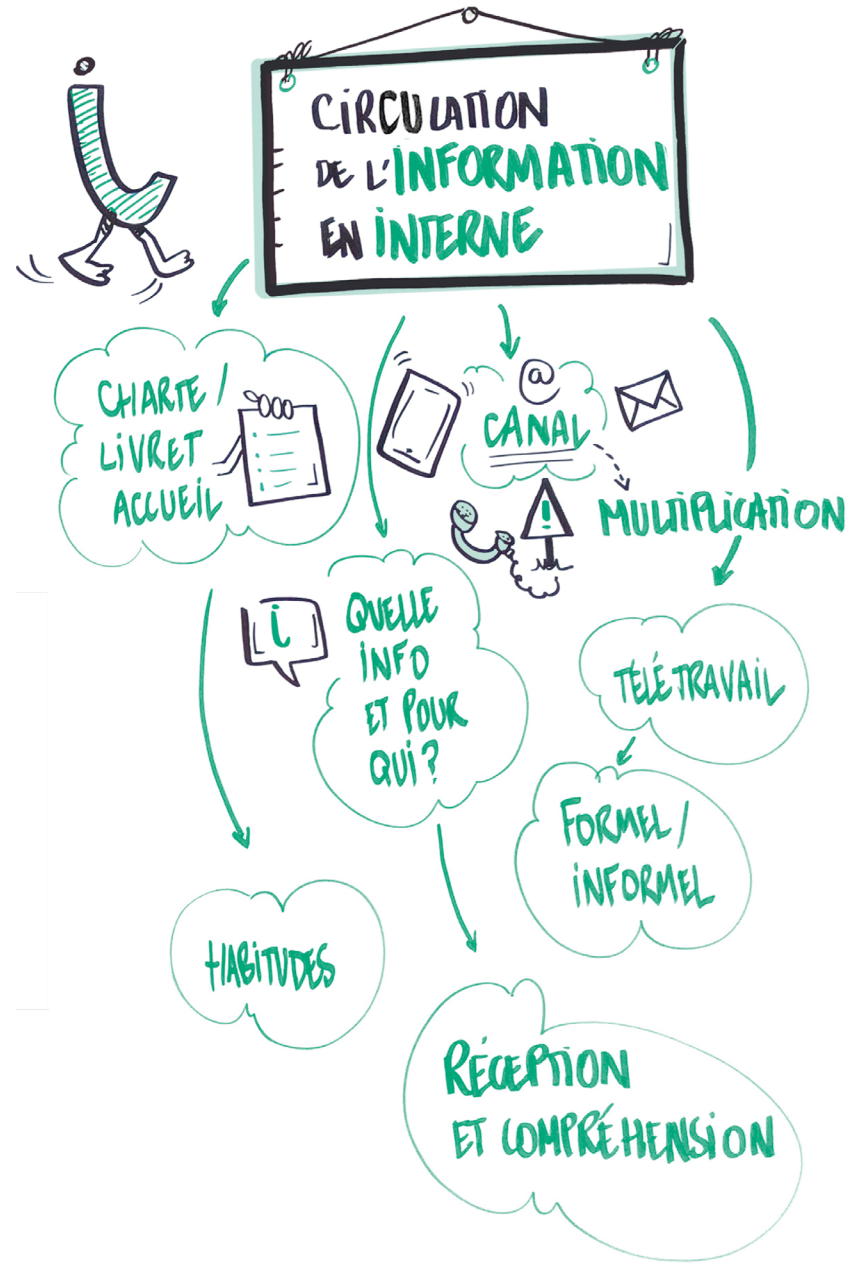 CiRCULATION
DE L'INFORMATION
EN iNTERNE
CHARTE /
LiVRET
ACCUEiL
@
CANAL
!
MULTiPLiCATiON
i
QUELLE
iNFO
ET POUR
QUi ?
TÉLÉTRAVAiL
FORMEL /
iNFORMEL
HABiTUDES
RÉCEPTiON
ET COMPRÉHENSiON